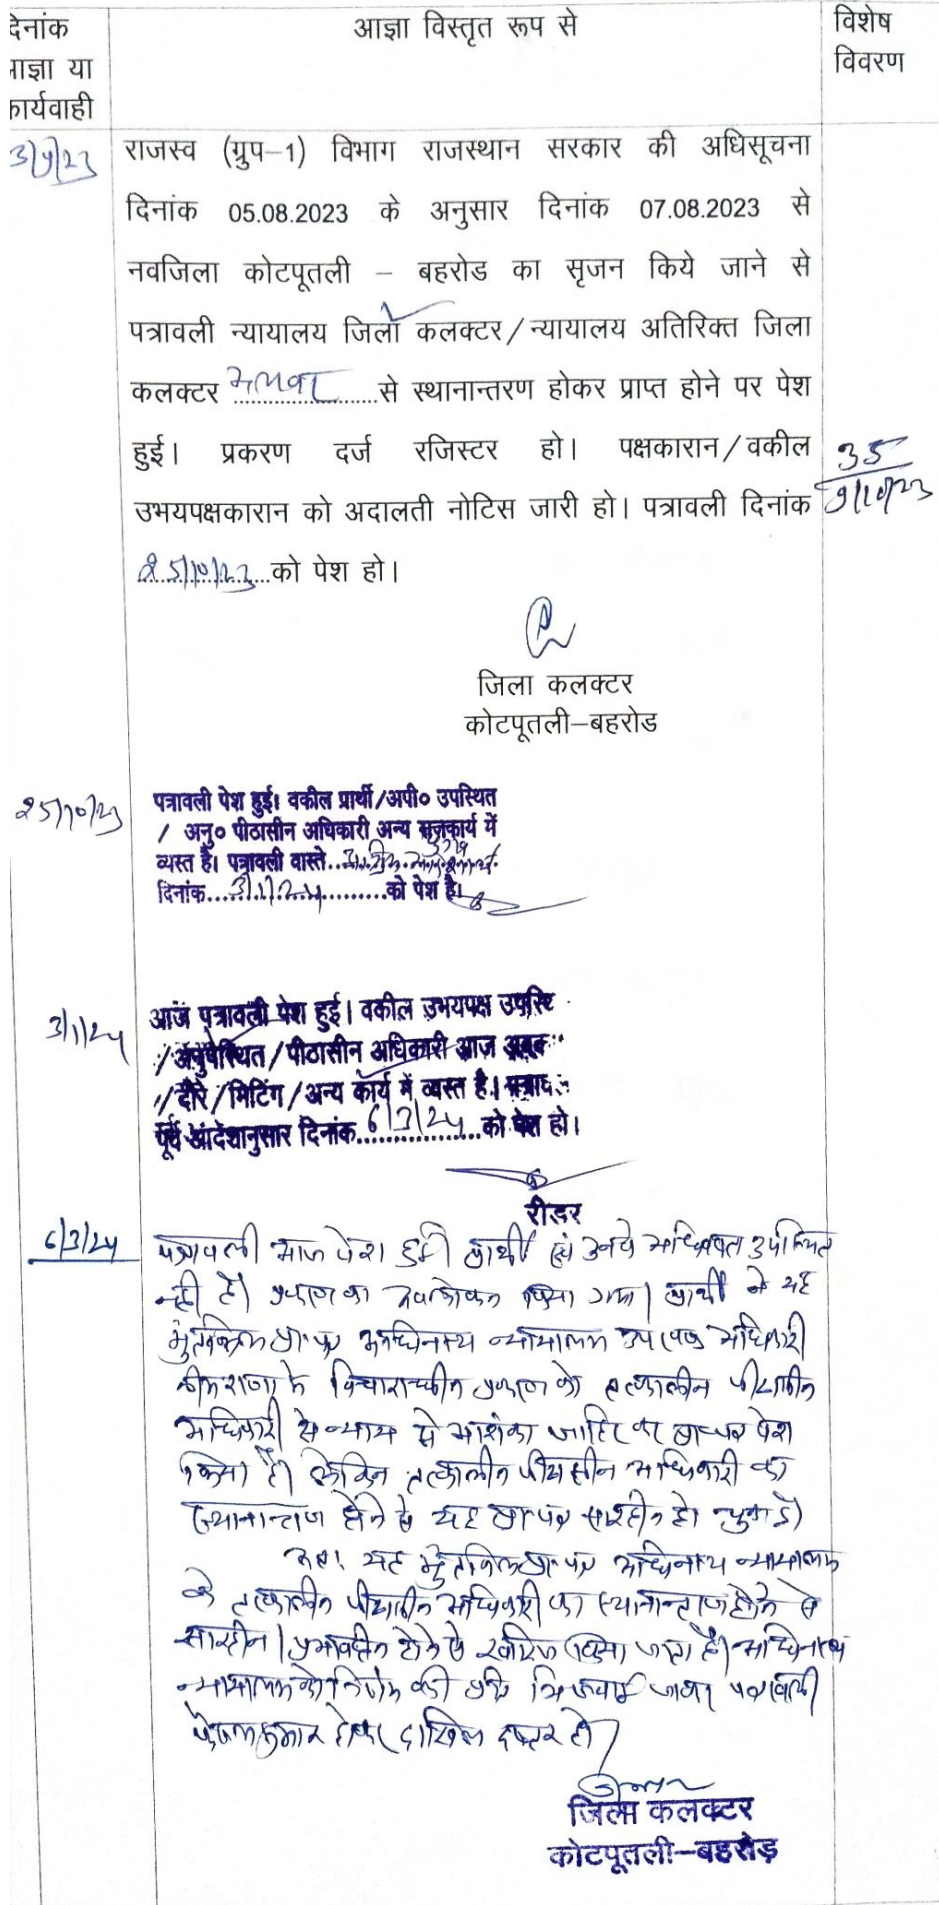 दिनांक
आज्ञा या
कार्यवाही
आज्ञा विस्तृत रूप से
विशेष
विवरण
3/9/23
राजस्व (ग्रुप–1) विभाग राजस्थान सरकार की अधिसूचना
दिनांक 05.08.2023 के अनुसार दिनांक 07.08.2023 से
नवजिला कोटपूतली – बहरोड का सृजन किये जाने से
पत्रावली न्यायालय जिला कलक्टर/न्यायालय अतिरिक्त जिला
कलक्टर अलवर से स्थानान्तरण होकर प्राप्त होने पर पेश
हुई। प्रकरण दर्ज रजिस्टर हो। पक्षकारान/वकील
उभयपक्षकारान को अदालती नोटिस जारी हो। पत्रावली दिनांक
25/10/23 को पेश हो।
35
9/10/23
जिला कलक्टर
कोटपूतली–बहरोड
25/10/23
पत्रावली पेश हुई। वकील प्रार्थी/अपी० उपस्थित
/ अनु० पीठासीन अधिकारी अन्य राजकार्य में
व्यस्त है। पत्रावली वास्ते
दिनांक 3/1/24 को पेश है।
3/1/24
आज पत्रावली पेश हुई। वकील उभयपक्ष उपस्थि
/अनुपस्थित/पीठासीन अधिकारी आज
/दौरे/मिटिंग/अन्य कार्य में व्यस्त है।
पूर्व आदेशानुसार दिनांक 6/3/24 को पेश हो।
रीडर
6/3/24
पत्रावली आज पेश हुई। प्रार्थी एवं उनके अधिवक्ता उपस्थित
नहीं है। प्रकरण का अवलोकन किया गया। प्रार्थी ने यह
मुंतकिल प्रा०पत्र अधिनस्थ न्यायालय उपखण्ड अधिकारी
नीमराणा के विचाराधीन प्रकरण को तत्कालीन पीठासीन
अधिकारी से न्याय से आशंका जाहिर कर प्रा०पत्र पेश
किया है। लेकिन तत्कालीन पीठासीन अधिकारी का
स्थानान्तरण होने से यह प्रा०पत्र सारहीन हो चुका है।
अतः यह मुंतकिल प्रा०पत्र अधिनस्थ न्यायालय
के तत्कालीन पीठासीन अधिकारी का स्थानान्तरण होने से
सारहीन/प्रभावहीन होने से खारिज किया जाता है। अधिनस्थ
न्यायालय को निर्णय की प्रति भिजवाई जाकर पत्रावली
फैसलशुमार होकर दाखिल दफ्तर हो।
जिला कलक्टर
कोटपूतली–बहरोड़